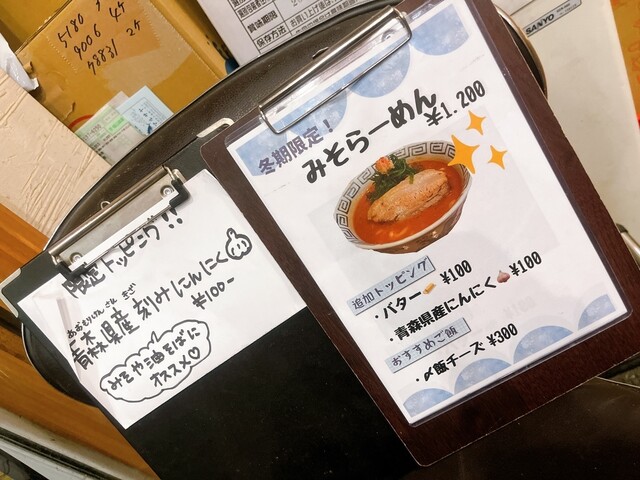 5180
9006 4ケ
48831 2ケ
賞味期限
保存方法
SANYO
限定トッピング!!
あおもりけん さん きざ
青森県産 刻みにんにく
¥100-
みそや油そばに
オススメ♡
冬期限定!
みそらーめん
¥1.200
追加トッピング
・バター ¥100
・青森県産にんにく ¥100
おすすめご飯
・〆飯チーズ ¥300